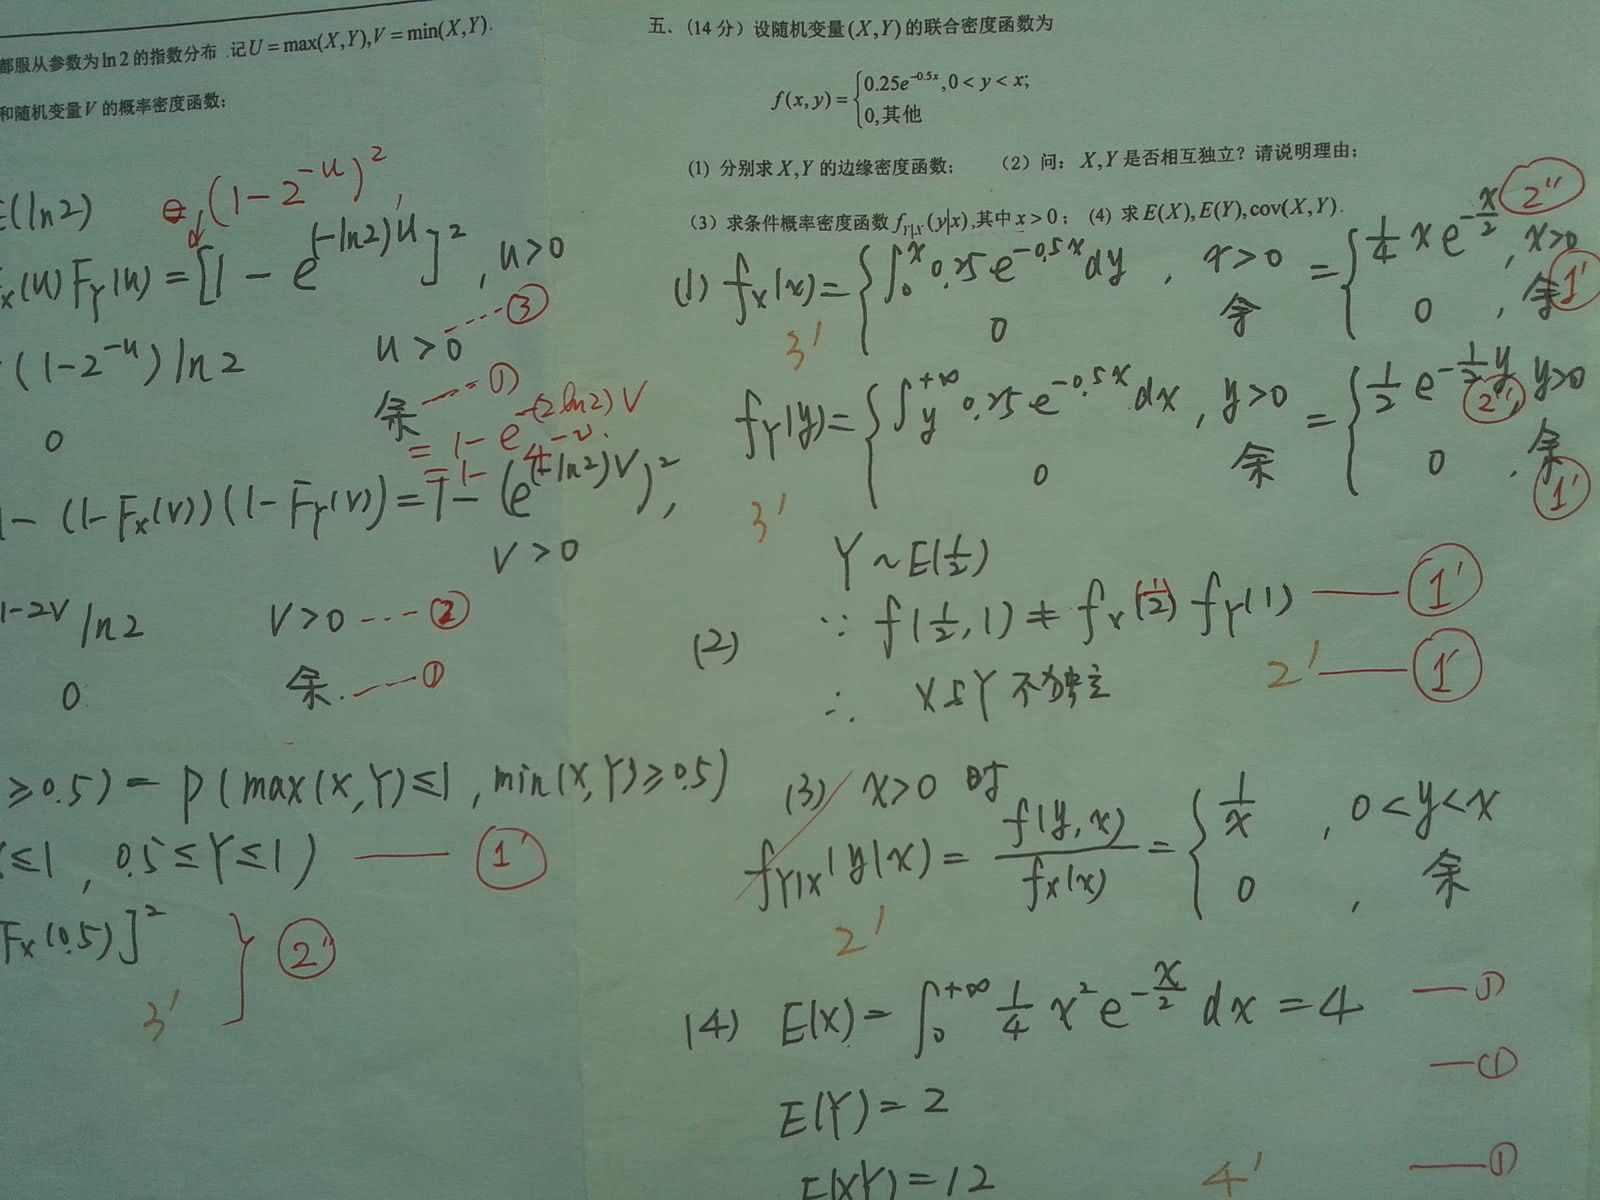 都服从参数为ln2的指数分布.记U=max(X,Y),V=min(X,Y).
和随机变量V的概率密度函数;
(1-2^{-u})^2,
E(ln2)
F_X(u)F_Y(u)=[1-e^{(-ln2)u}]^2, u>0
③
(1-2^{-u})ln2 u>0
0 余 ①
=1-e^{-(2ln2)V}
=1-4^{-v}.
1-(1-F_X(v))(1-F_Y(v))=1-(e^{(-ln2)V})^2,
V>0
1-2V ln2 V>0 ②
0 余. ①
≥0.5)=P(max(X,Y)≤1,min(X,Y)≥0.5)
≤1, 0.5≤Y≤1) 1'
F_X(0.5)]^2 2'
3'
五.(14分)设随机变量(X,Y)的联合密度函数为
f(x,y)={0.25e^{-0.5x},0<y<x;
0,其他
(1) 分别求X,Y的边缘密度函数; (2)问:X,Y是否相互独立?请说明理由;
(3)求条件概率密度函数f_{Y|X}(y|x),其中x>0; (4) 求E(X),E(Y),cov(X,Y).
(1) f_X(x)={∫_0^x 0.25e^{-0.5x}dy, x>0 ={1/4 x e^{-x/2}, x>0 2''
0 余 0, 余 1'
3'
f_Y(y)={∫_y^{+∞} 0.25e^{-0.5x}dx, y>0 ={1/2 e^{-1/2 y}, y>0 2''
0 余 0, 余 1'
3'
Y~E(1/2)
(2) ∵ f(1/2,1)≠f_X(1/2)f_Y(1) 1'
∴ X与Y不独立 2' 1'
(3) x>0 时
f_{Y|X}(y|x)=f(y,x)/f_X(x)={1/x, 0<y<x
0, 余
2'
(4) E(X)=∫_0^{+∞} 1/4 x^2 e^{-x/2} dx=4 ①
①
E(Y)=2
E(XY)=12 4' ①